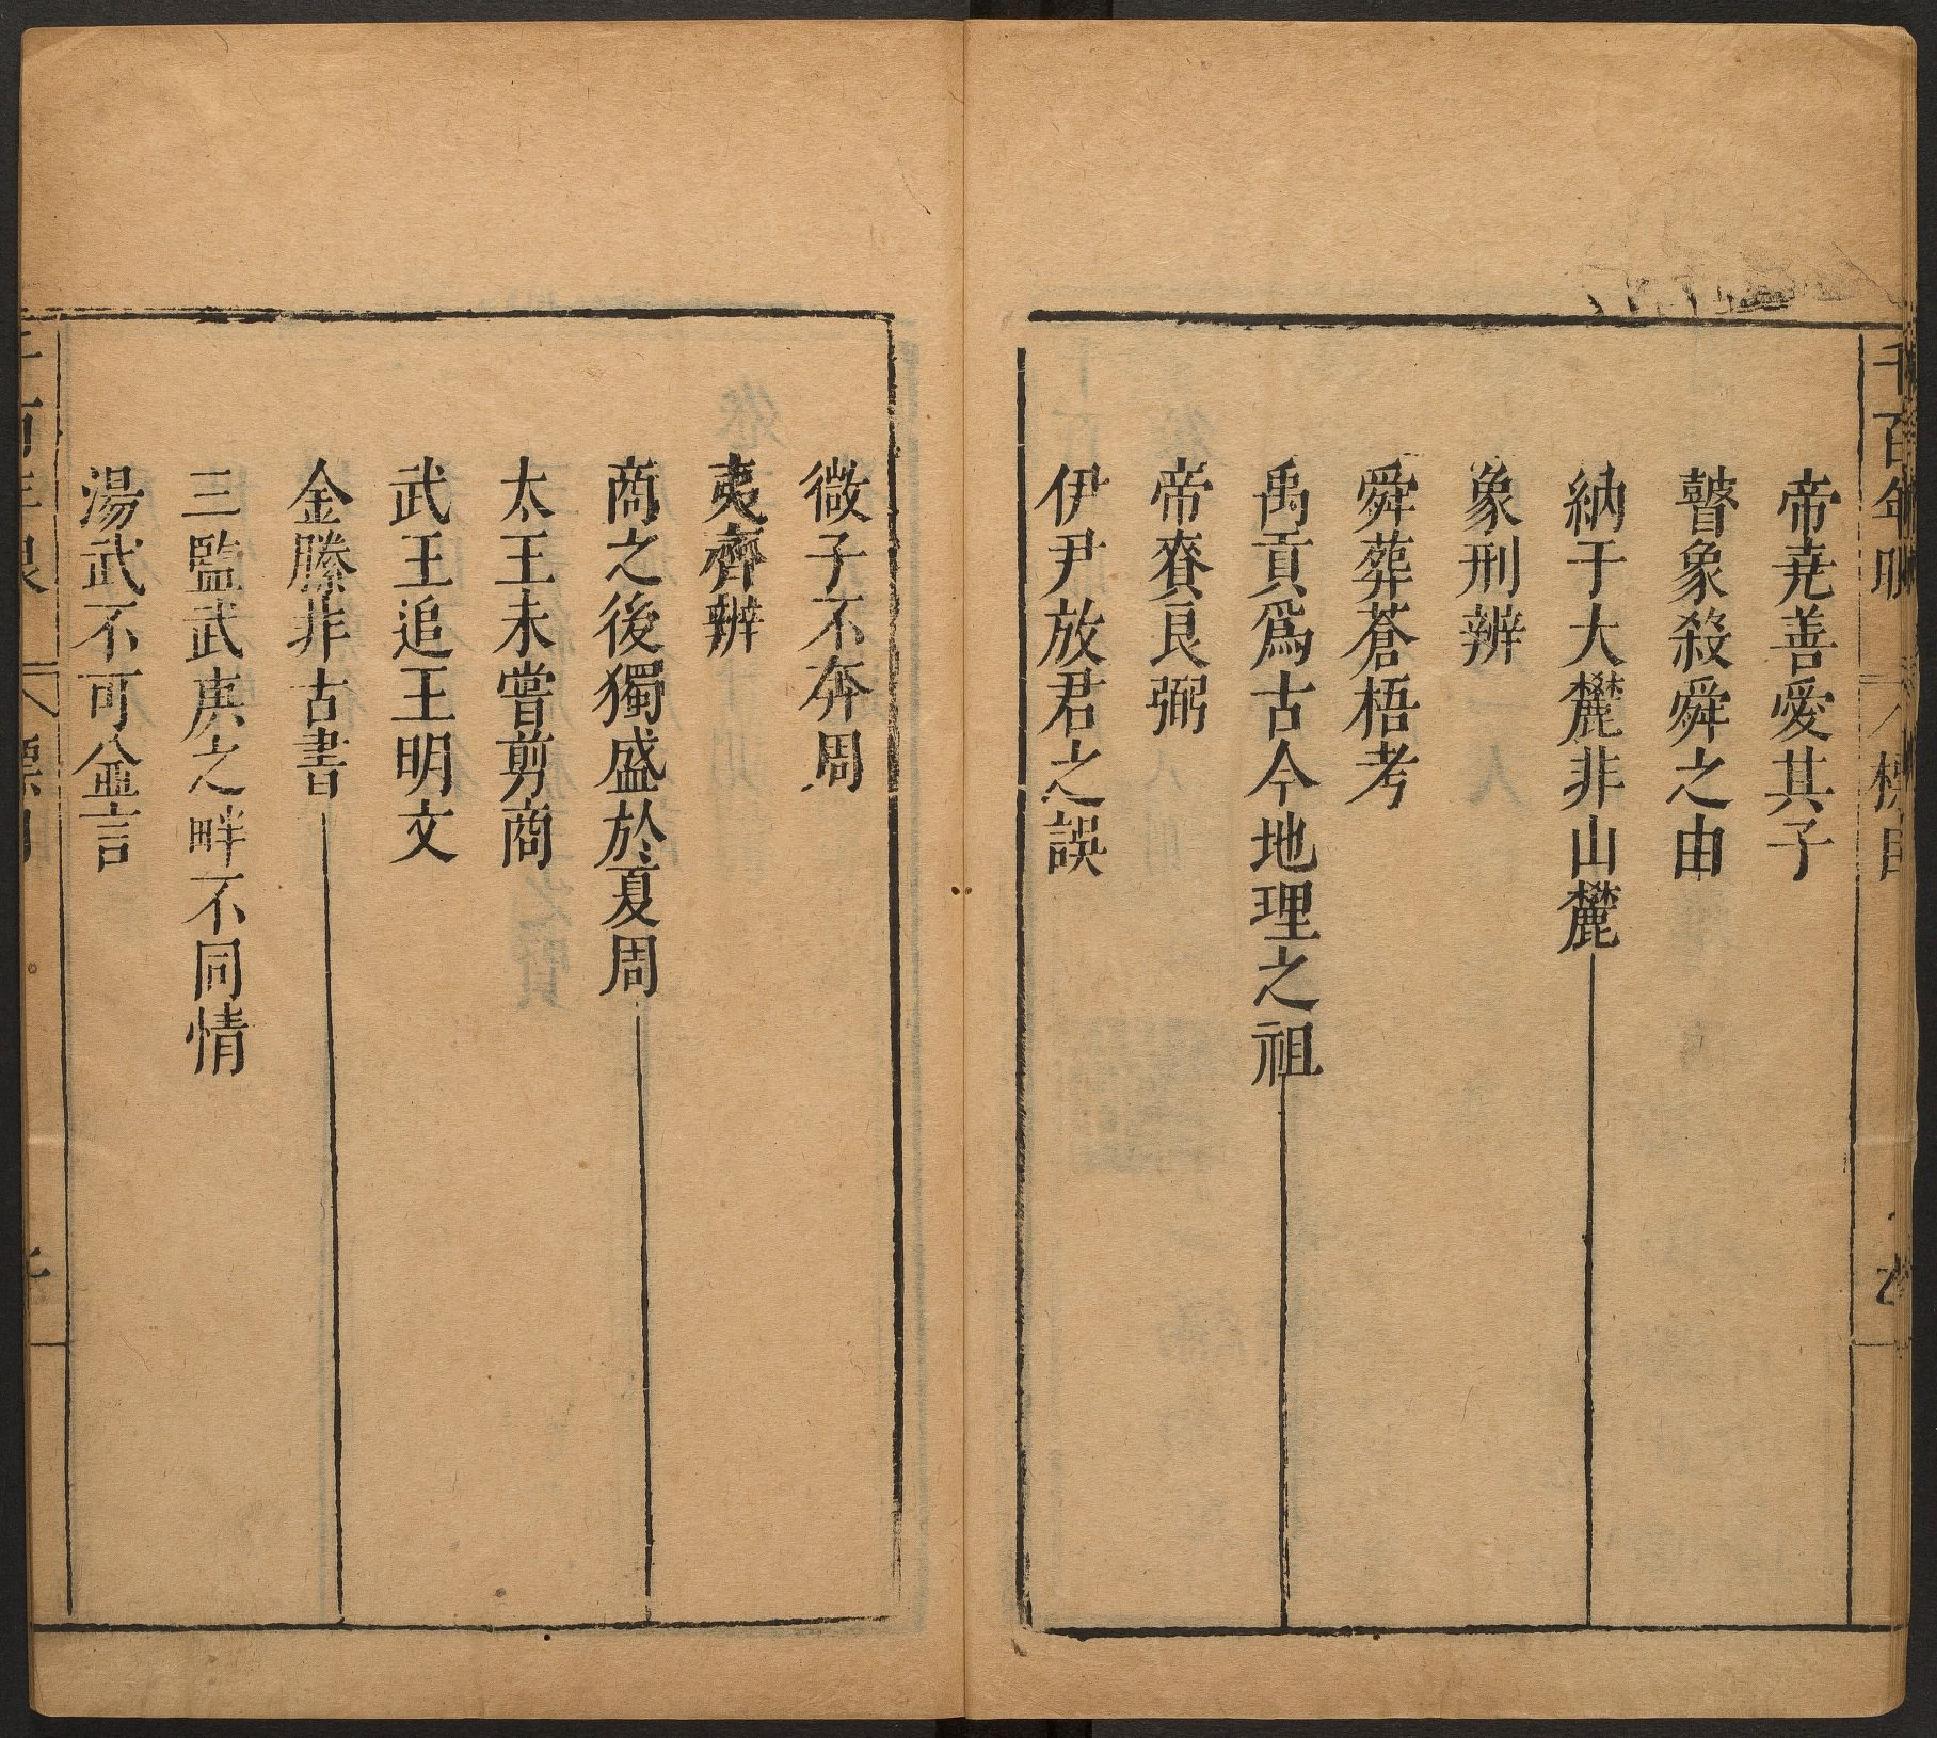 千百年眼 標目
帝堯善愛其子
瞽象殺舜之由
納于大麓非山麓
象刑辨
舜葬蒼梧考
禹貢爲古今地理之祖
帝賚良弼
伊尹放君之誤
微子不奔周
夷齊辨
商之後獨盛於夏周
太王未嘗剪商
武王追王明文
金縢非古書
三監武庚之畔不同情
湯武不可並言